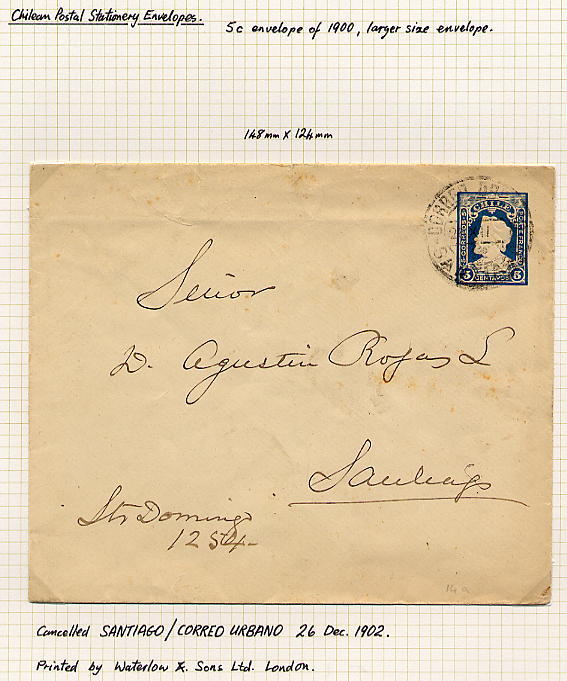 Chilean Postal Stationery Envelopes.
5c envelope of 1900, larger size envelope.
148mm x 124mm
CORREO
CHILE
5 CENTAVOS 5
Señor
D. Agustin Rojas L
Santiago
Sto Domingo
1254-
14a
Cancelled SANTIAGO/CORREO URBANO 26 Dec. 1902.
Printed by Waterlow & Sons Ltd. London.